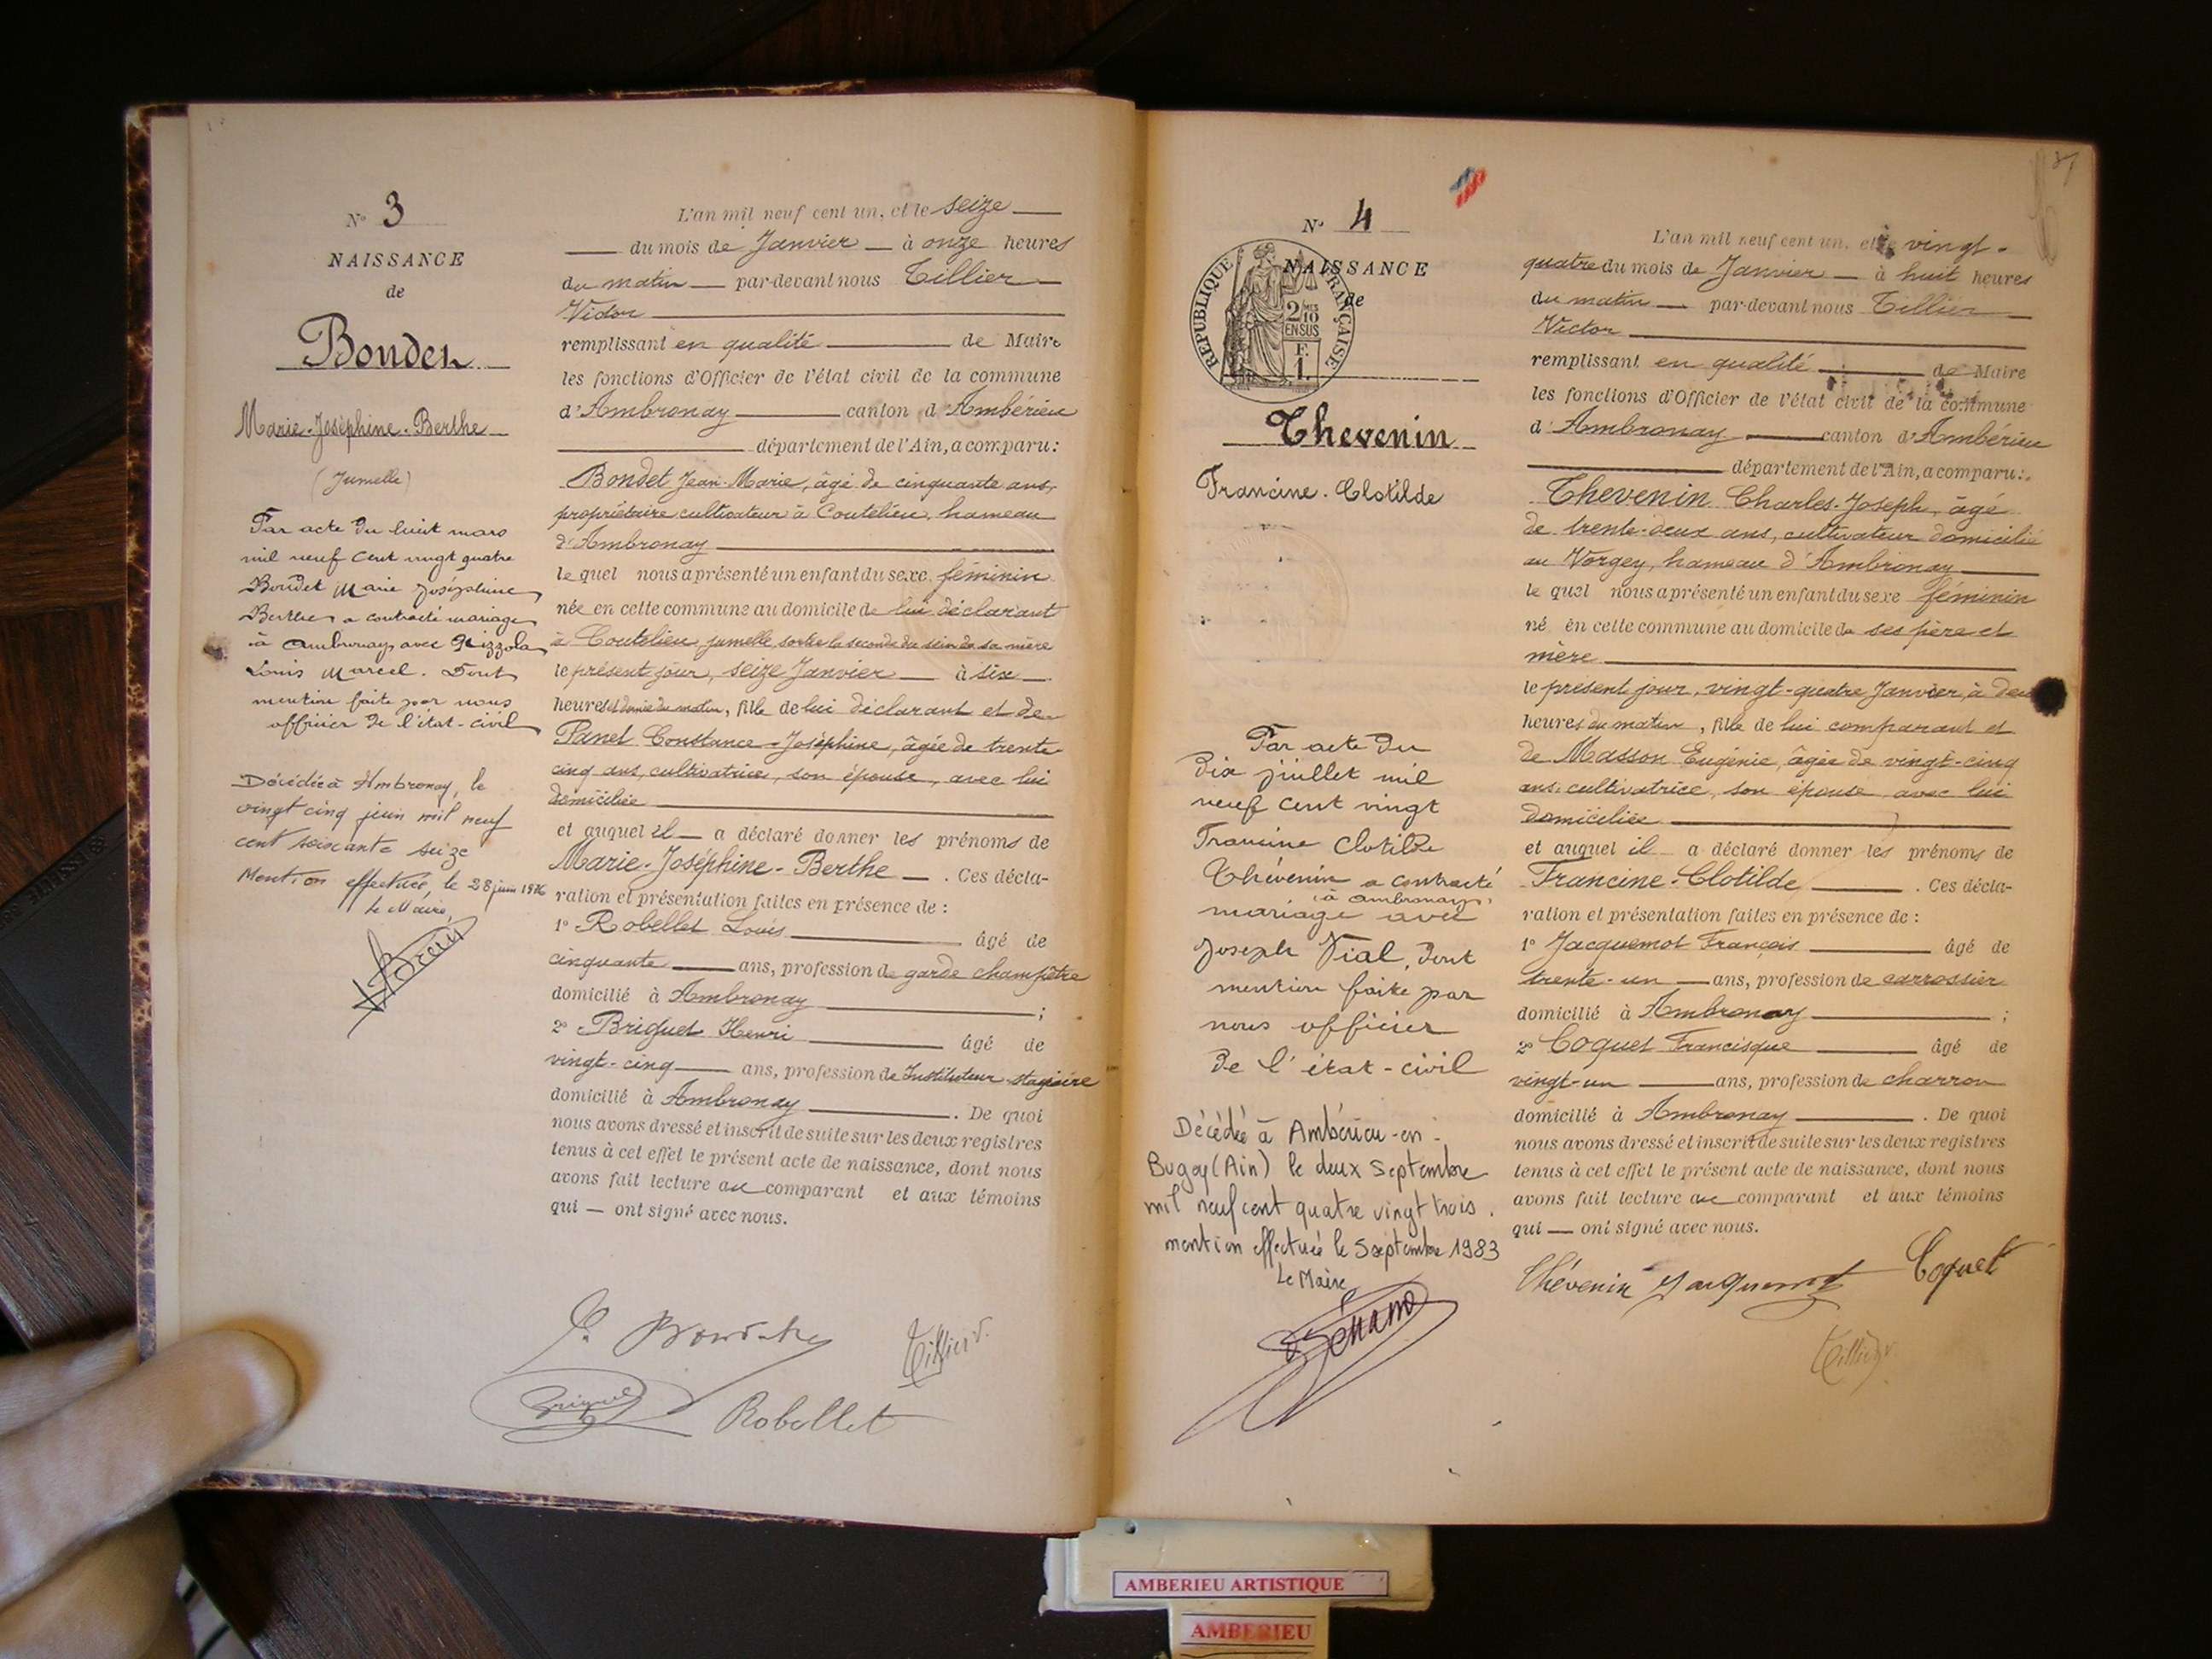 N° 3
NAISSANCE
de
Bondet
Marie-Joséphine-Berthe
(Jumelle)
Par acte du huit mars
mil neuf cent vingt quatre
Bondet Marie Joséphine
Berthe a contracté mariage
à Ambronay avec
Louis Marcel. Dont
mention faite par nous
officier de l'état-civil
Décédée à Ambronay, le
vingt cinq juin mil neuf
cent soixante seize
Mention effectuée, le 28 juin 1976
Le Maire,
L'an mil neuf cent un, et le seize
du mois de Janvier à onze heures
du matin par-devant nous Tillier
Victor
remplissant en qualité de Maire
les fonctions d'Officier de l'état civil de la commune
d'Ambronay canton d'Ambérieu
département de l'Ain, a comparu:
Bondet Jean-Marie, âgé de cinquante ans,
propriétaire cultivateur à Coutelieu, hameau
d'Ambronay
le quel nous a présenté un enfant du sexe féminin
née en cette commune au domicile de lui déclarant
à Coutelieu, jumelle, sortie la seconde du sein de sa mère
le présent jour, seize Janvier à six
heures et demie du matin, fille de lui déclarant et de
Panet Constance-Joséphine, âgée de trente-
cinq ans, cultivatrice, son épouse, avec lui
domiciliée
et auquel il a déclaré donner les prénoms de
Marie-Joséphine-Berthe. Ces décla-
ration et présentation faites en présence de :
1° Robellet Louis âgé de
cinquante ans, profession de garde champêtre
domicilié à Ambronay ;
2° Briquet Henri âgé de
vingt-cinq ans, profession de Instituteur stagiaire
domicilié à Ambronay. De quoi
nous avons dressé et inscrit de suite sur les deux registres
tenus à cet effet le présent acte de naissance, dont nous
avons fait lecture au comparant et aux témoins
qui — ont signé avec nous.
Tillier V.
Briquet Robellet
N° 4
NAISSANCE
de
REPUBLIQUE FRANÇAISE
2/10 EN SUS
F. 1.
Thevenin
Francine-Clotilde
Par acte du
dix juillet mil
neuf cent vingt
Francine Clotilde
Thévenin a contracté
(à Ambronay)
mariage avec
Joseph Vial, dont
mention faite par
nous officier
de l'état-civil
Décédée à Ambérieu-en-
Bugey (Ain) le deux Septembre
mil neuf cent quatre vingt trois.
mention effectuée le 5 septembre 1983
Le Maire
L'an mil neuf cent un, et le vingt-
quatre du mois de Janvier à huit heures
du matin par-devant nous Tillier
Victor
remplissant en qualité de Maire
les fonctions d'Officier de l'état civil de la commune
d'Ambronay canton d'Ambérieu
département de l'Ain, a comparu:
Thevenin Charles-Joseph, âgé
de trente-deux ans, cultivateur domicilié
au Vorgey, hameau d'Ambronay
le quel nous a présenté un enfant du sexe féminin
né en cette commune au domicile de ses père et
mère
le présent jour, vingt-quatre Janvier, à deux
heures du matin, fille de lui comparant et
de Masson Eugénie, âgée de vingt-cinq
ans, cultivatrice, son épouse, avec lui
domiciliée
et auquel il a déclaré donner les prénoms de
Francine-Clotilde. Ces décla-
ration et présentation faites en présence de :
1° Jacquemot François âgé de
trente-un ans, profession de carrossier
domicilié à Ambronay ;
2° Coquet Francisque âgé de
vingt-un ans, profession de charron
domicilié à Ambronay. De quoi
nous avons dressé et inscrit de suite sur les deux registres
tenus à cet effet le présent acte de naissance, dont nous
avons fait lecture au comparant et aux témoins
qui — ont signé avec nous.
Thévenin Jacquemot Coquet
Tillier V.
AMBERIEU ARTISTIQUE
AMBERIEU